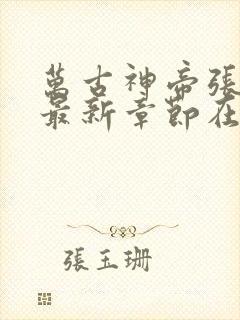 萬古神帝張
最新章節在
張玉珊